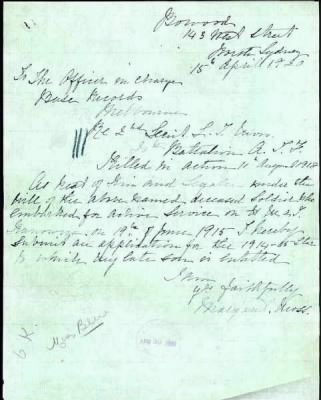 Bowood
143 West Street
North Sydney
15th April 1920
To The Officer in Charge
Base Records
Melbourne
Re 2nd Lieut L. J.
Battalion A. I. F.
Killed in action 11th August 1918
As next of Kin and Legatee under the
will of the above named deceased Soldier who
embarked for active Service on H. M. A. T.
on 19th of June 1915 I hereby
submit an application for the 1914-15 Star
to which my late son is entitled
I am
yrs faithfully
Margaret